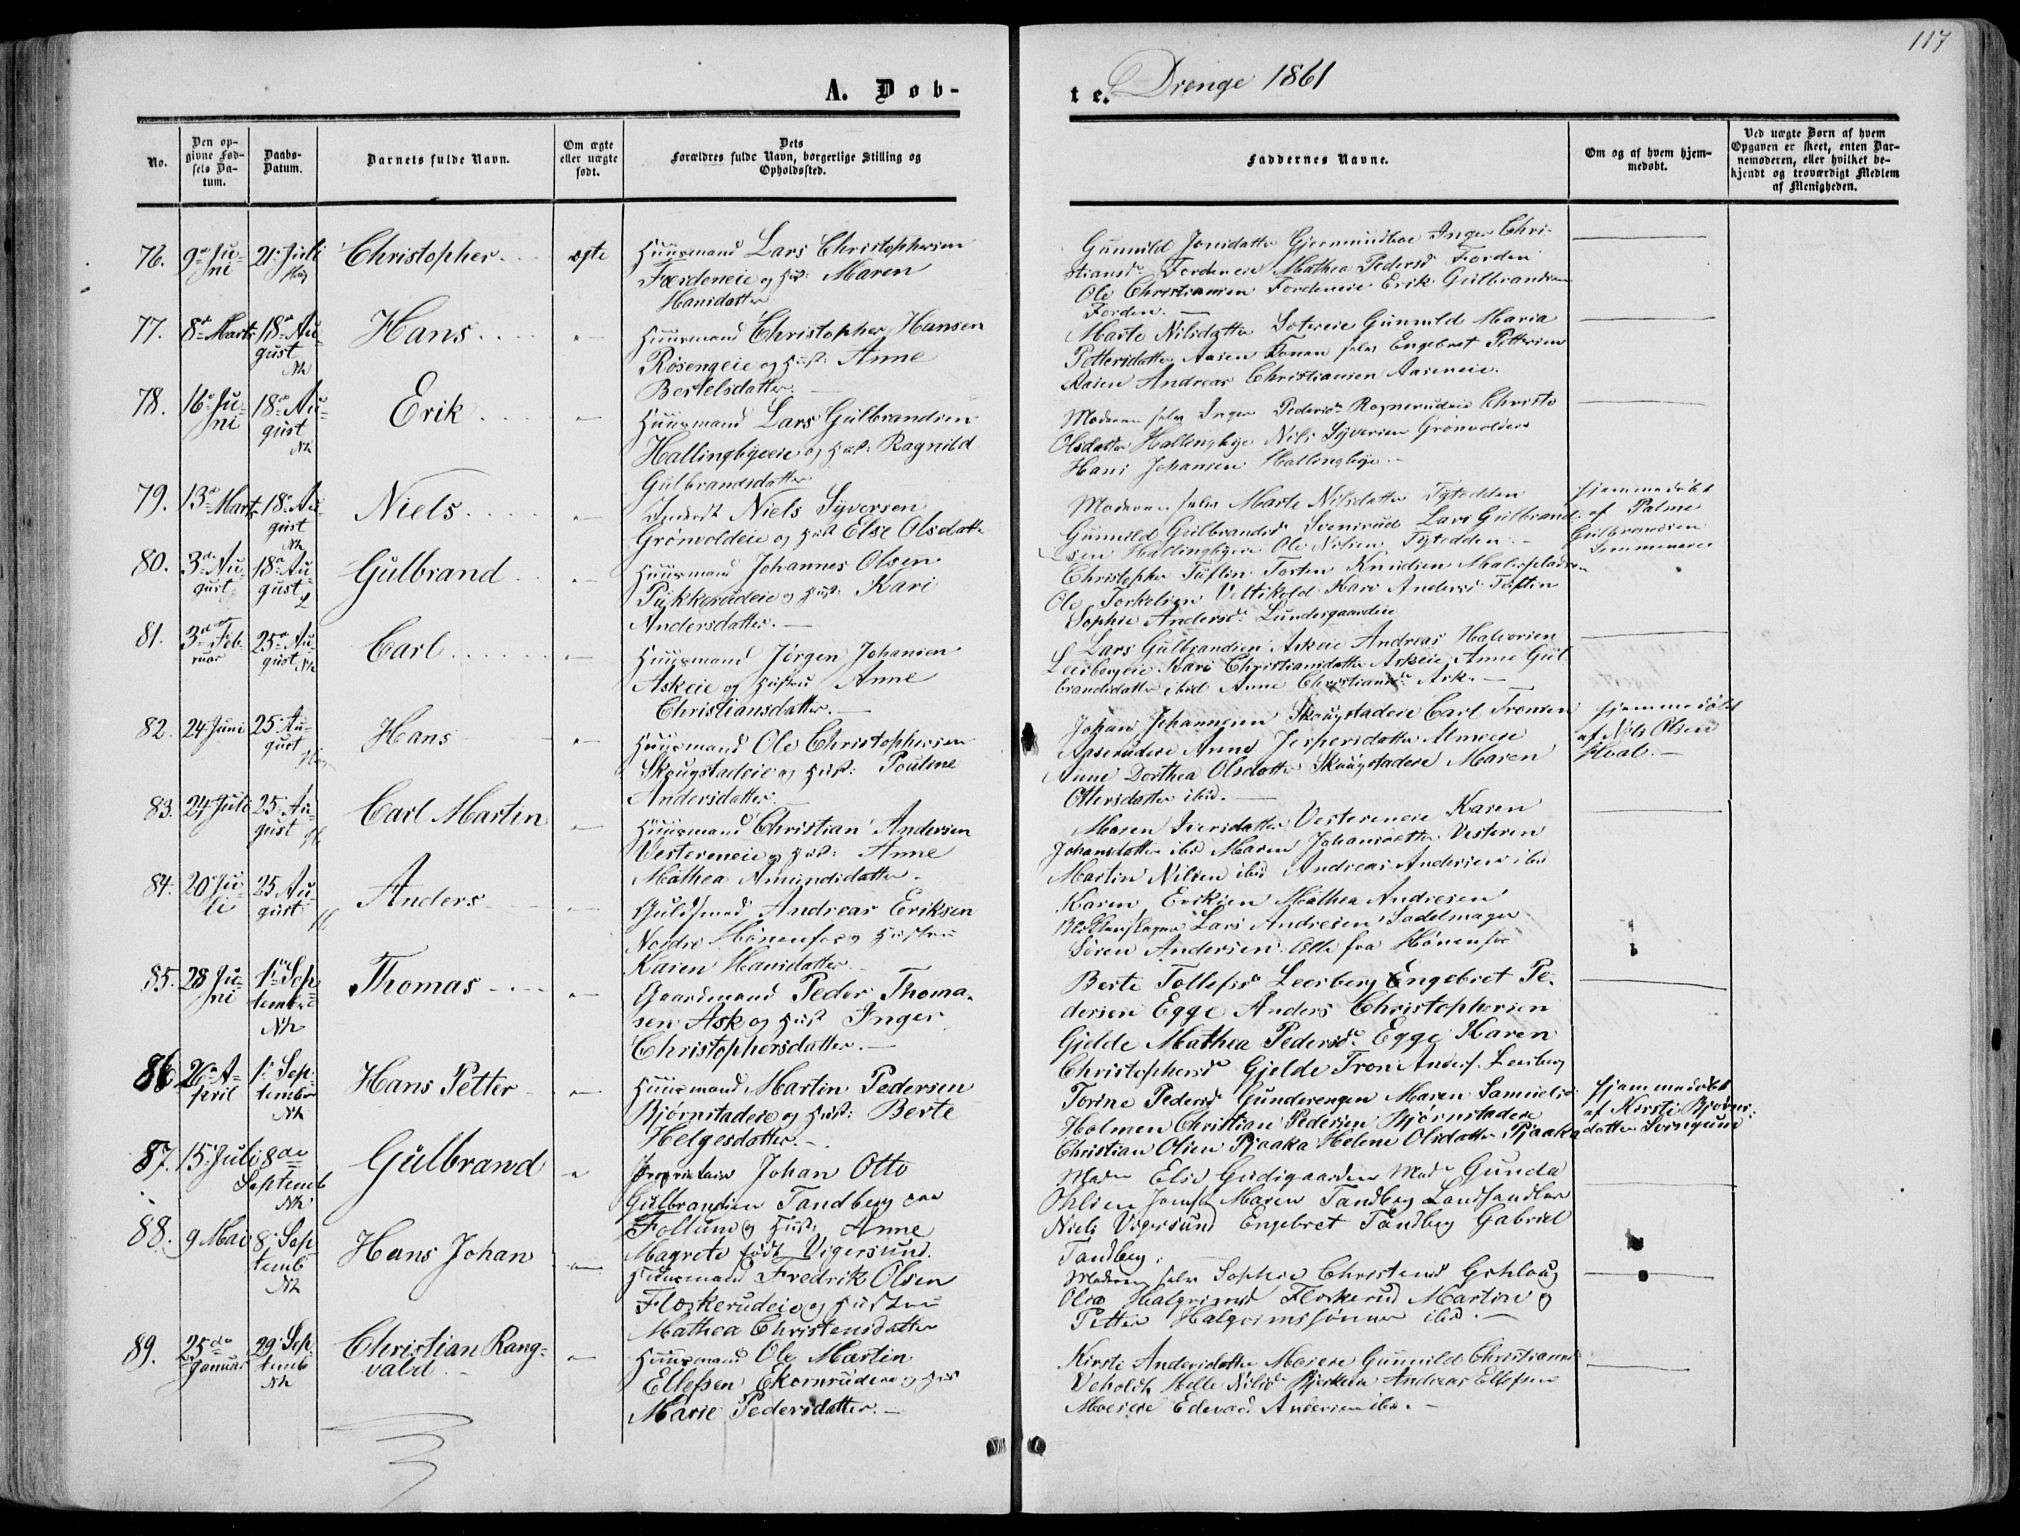 117
A. Døb-
te. Drenge 1861
No.
Den op-
givne Fød-
sels Da-
tum.
Daabs-
Datum.
Barnets fulde Navn.
Om ægte
eller uægte
født.
Dets
Forældres fulde Navn, borgerlige Stilling og
Opholdssted.
Faddernes Navne.
Om og af hvem hjem-
medøbt.
Ved uægte Børn af hvem
Opgaven er skeet, enten Bar-
nemoderen, eller hvilket be-
kjendt og troværdigt Medlem
af Menigheden.
76. 9de Ju- 21 Juli Christopher ægte Huusmand Lars Christophersen
ni Færdeneie og Hust: Maren
Hansdatter
Gunnild Jonsdatter Inger Chri-
Fordeneie Mathea Pedersd Forden
Ole Christiansen Fordeneie Erik Gulbrandsen
Forden.
77. 8de Marts 18de Au- Hans Huusmand Christopher Hansen
gust Rosengeie og Hust: Anne
Nh Bertelsdatter.
Marte Nilsdatter Sotereie Gunnild Maria
Pettersdatter Aasen Konen selv Engebret Pettersen
Aasen Andreas Christiansen Aaseneie.
78. 16de Ju- 18de Au- Erik Huusmand Lars Gulbrandsen
ni gust Hallingbyeie og Hust: Ragnild
Nh Gulbrandsdatter
Moderen selv Inger Pedersd Rognerudeie Christo
Olsdatter Hallingbye Nils Syversen Grønvoldeie
Hans Johansen Hallingbye.
79. 13de Marts 18de Au- Niels Niels Syversen
gust Grønvoldeie og Hust Else Olsdatter
Nh
Moderen selv Marte Nilsdatter Tytedden
Gunnild Gulbrandsd Svensrud Lars Gulbrand-
sen Hallingbyeie Ole Nilsen Tytedden.
Hjemmedøbt
af Palme
Gulbrandsen
80. 3de Au- 18de Au- Gulbrand Huusmand Johannes Olsen
gust gust og Hust: Kari
L Andersdatter.
Christopher Tuftin Torsten Knudsen
Ole Torkelsen Veltikold Kari Andersd Tuftin
Sophie Andersd Lundesgaardeie
81. 3de Feb- 25de Au- Carl Huusmand Jørgen Johansen
ruar gust Nh Askeie og Hustru Anne
Christiansdatter.
Lars Gulbrandsen Askeie Andreas Halvorsen
Leerbergeie Kari Christiansdatter Askeie Anne Gul-
brandsdatter ibid Anne Christiansd Ask.
82. 24 Juni 25 Au- Hans Huusmand Ole Christophersen
gust Skougstadeie og Hust: Pouline
Andersdatter
Johan Johannesen Skougstadeie Carl Tronsen
Aaserudeie Anne Jespersdatter Almeeie
Anne Dorthea Olsdatter Skougstadeie Maren
Ottersdatter ibid.
Hjemmedøbt
af Nils Olsen
Hval.
83. 24 Juli 25 Au- Carl Martin Huusmand Christian Andersen
gust Vestereneie og Hust: Anne
Mathea Amundsdatter.
Maren Iversdatter Vestereneie Karen
Johansdatter ibid Maren Johansdatter Vesteren
Martin Nilsen ibid Andreas Andersen ibid
84. 20 Ju- 25 Au- Anders Guldsmed Andreas Eriksen
li gust Nordre Hønenfos og Hustru
Karen Hansdatter
Karen Eriksen Mathea Andresen
Blikkenslager Lars Andresen Sadelmager
Søren Andersen. Alle fra Hønenfos
85. 28 Ju- 1ste Sep- Thomas Gaardmand Peder Thoma-
ni tember sen Ask og Hust Inger
Nh Christophersdatter.
Berte Tollefsd Leerberg Engebret Pe-
dersen Egge Anders Christophersen
Gjelde Mathea Pedersd Egge Karen
Christophersd Gjelde Tron Anders. Leerberg
86 26 A- 1 Sep- Hans Petter Huusmand Martin Pedersen
pril tember Bjørnstadeie og Hust: Berte
Nh Helgesdatter.
Torine Pedersd Gunderengen Maren Samuelsd
Holmen Christian Pedersen Bjørnstadeie
Christian Olsen Pjaaka Helene Olsdatter Pjaaka
Hjemmedøbt
af Kirsti Bjørns-
datter
87. 15 Juli 8de Gulbrand Proprietair Johan Otto
Septemb Gulbrandsen Tandberg
Nh Follum og Hust: Anne
Magrete født Vigersund.
Mad Elise Gudsgaarden Mad Gunda
Ohlsen Jomfr Maren Tandberg Landhandler
Niels Vigersund Engebret Tandberg Gabriel
Tandberg.
88. 9 Mai 8 Sep- Hans Johan Huusmand Fredrik Olsen
temb Floskerudeie og Hustru
Nh Mathea Christensdatter
Moderen selv Sophie Christensd
Halgrimsd Floskerud Martin og
Petter Halgrimssønner ibid.
89. 25de 29 Sep- Christian Rang- Huusmand Ole Martin
Januar temb vald Ellefsen Ekornrudeie og Hus
Nh Marie Pedersdatter.
Kirsti Andersdatter Moeseie Gunnild Christians
Veholdt Helle Nilsd Andreas Ellefsen
Moeseie Edevard Andersen ibid.